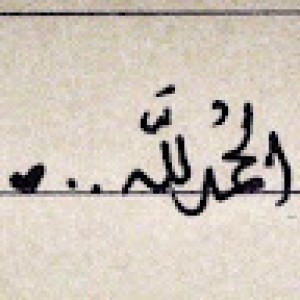 الحمُدللَّه .. ♥